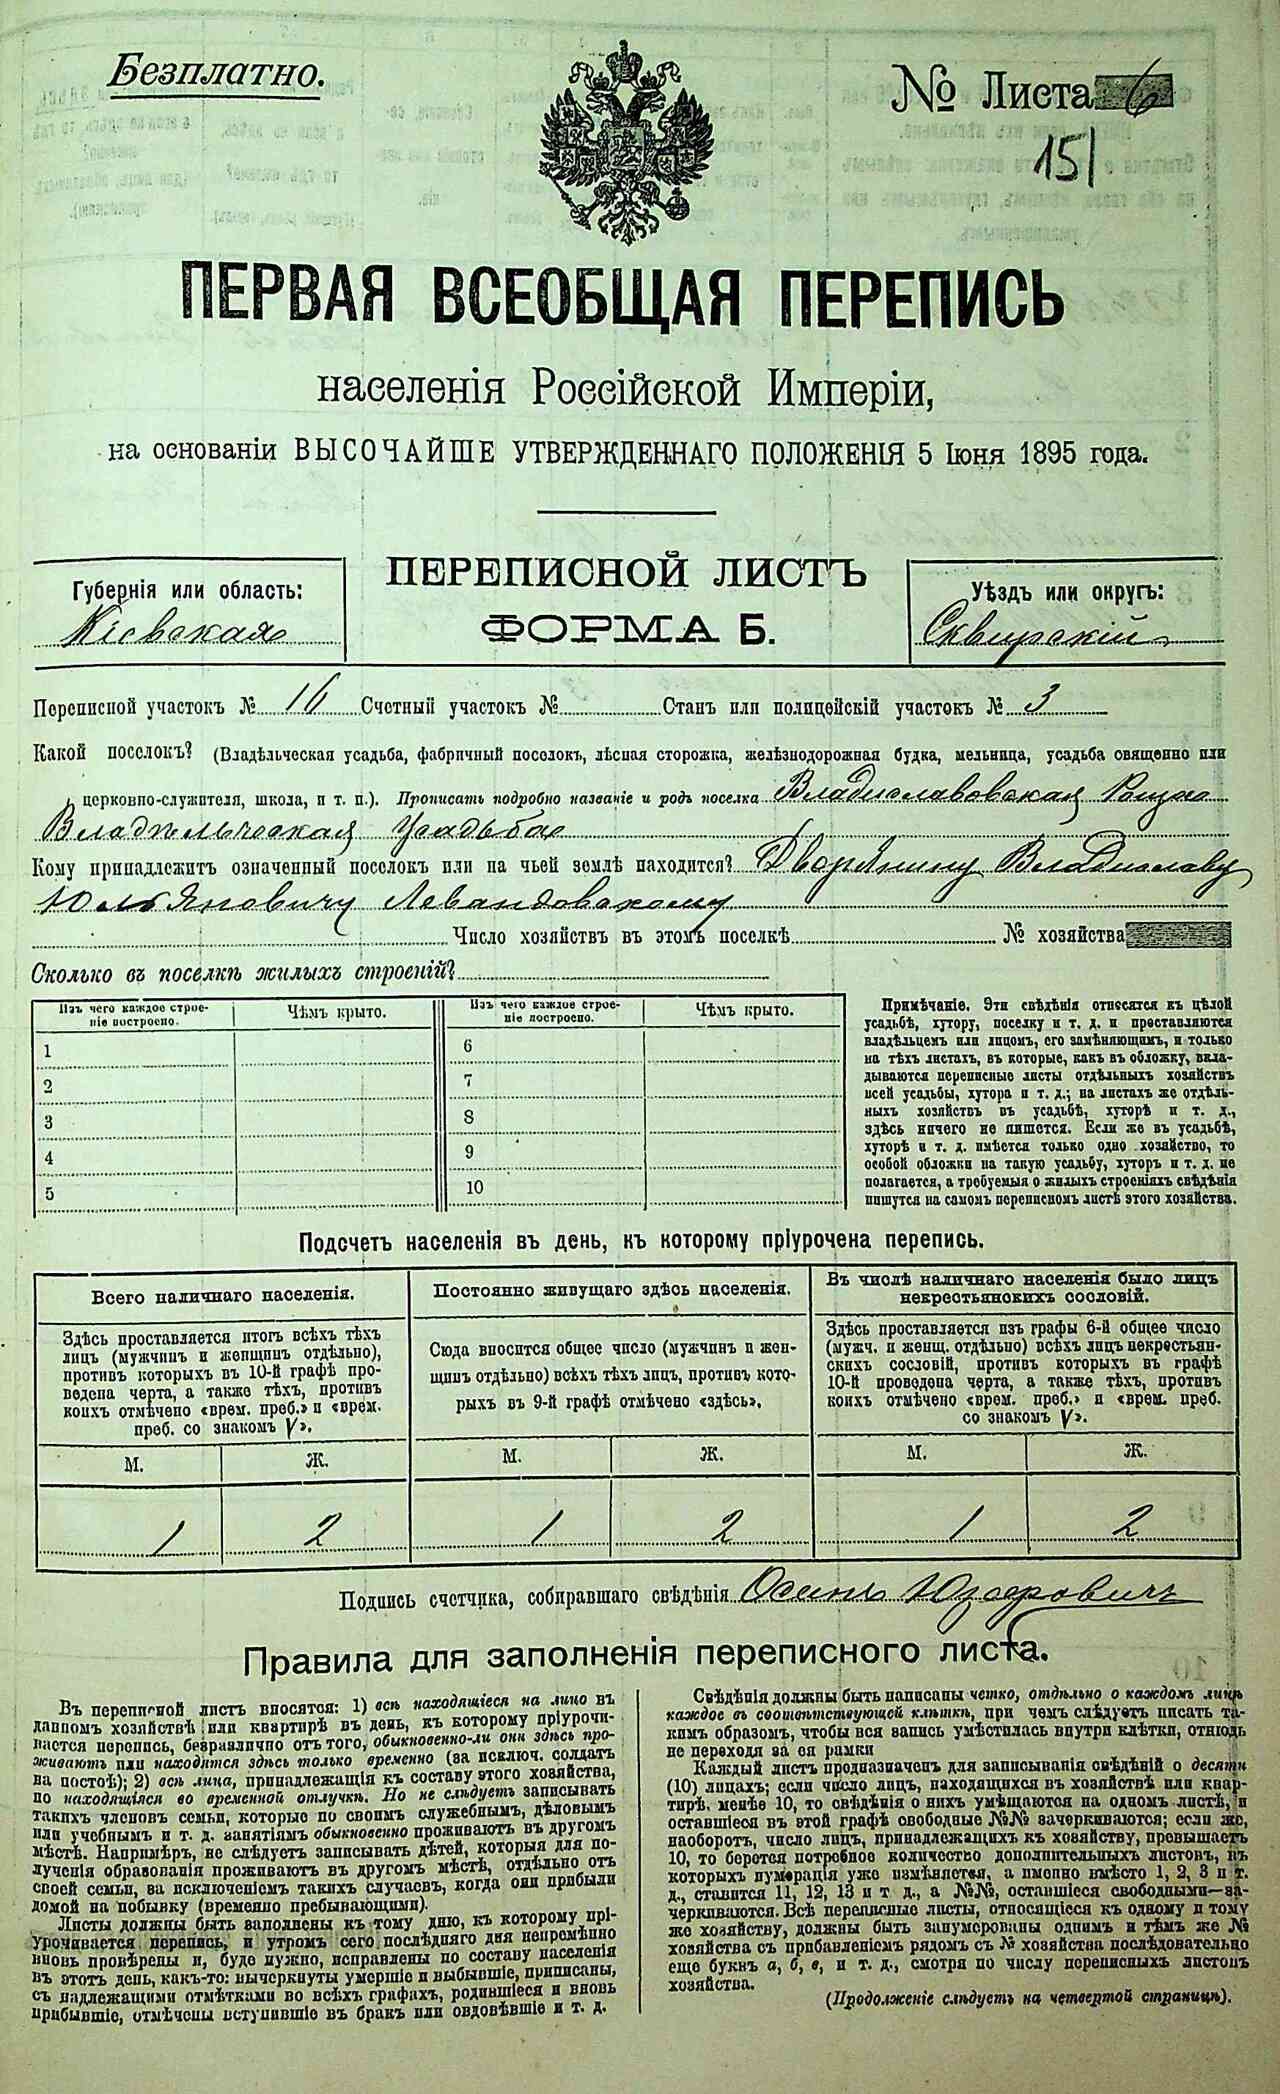 Безплатно.
№ Листа 6
151
ПЕРВАЯ ВСЕОБЩАЯ ПЕРЕПИСЬ
населенія Россійской Имперіи,
на основаніи ВЫСОЧАЙШЕ УТВЕРЖДЕННАГО ПОЛОЖЕНІЯ 5 Іюня 1895 года.
Губернія или область:
Кіевская
ПЕРЕПИСНОЙ ЛИСТЪ
ФОРМА Б.
Уѣздъ или округъ:
Сквирскій
Переписной участокъ № 16 Счетный участокъ № Станъ или полицейскій участокъ № 3
Какой поселокъ? (Владѣльческая усадьба, фабричный поселокъ, лѣсная сторожка, желѣзнодорожная будка, мельница, усадьба священно или
церковно-служителя, школа, и т. п.). Прописать подробно названіе и родъ поселка Владиславовская Роща
Владѣльческая Усадьба
Кому принадлежитъ означенный поселокъ или на чьей землѣ находится? Дворянину Владиславу
Юльяновичу Левандовскому
Число хозяйствъ въ этомъ поселкѣ № хозяйства
Сколько въ поселкѣ жилыхъ строеній?
Изъ чего каждое строе-
ніе построено.
Чѣмъ крыто.
Изъ чего каждое строе-
ніе построено.
Чѣмъ крыто.
1
6
2
7
3
8
4
9
5
10
Примѣчаніе. Эти свѣдѣнія относятся къ цѣлой
усадьбѣ, хутору, поселку и т. д. и проставляются
владѣльцемъ или лицомъ, его замѣняющимъ, и только
на тѣхъ листахъ, въ которые, какъ въ обложку, вкла-
дываются переписные листы отдѣльныхъ хозяйствъ
всей усадьбы, хутора и т. д.; на листахъ же отдѣль-
ныхъ хозяйствъ въ усадьбѣ, хуторѣ и т. д.,
здѣсь ничего не пишется. Если же въ усадьбѣ,
хуторѣ и т. д. имѣется только одно хозяйство, то
особой обложки на такую усадьбу, хуторъ и т. д. не
полагается, а требуемыя о жилыхъ строеніяхъ свѣдѣнія
пишутся на самомъ переписномъ листѣ этого хозяйства.
Подсчетъ населенія въ день, къ которому пріурочена перепись.
Всего наличнаго населенія.
Здѣсь проставляется итогъ всѣхъ тѣхъ
лицъ (мужчинъ и женщинъ отдѣльно),
противъ которыхъ въ 10-й графѣ про-
ведена черта, а также тѣхъ, противъ
коихъ отмѣчено «врем. преб.» и «врем.
преб. со знакомъ V».
Постоянно живущаго здѣсь населенія.
Сюда вносится общее число (мужчинъ и жен-
щинъ отдѣльно) всѣхъ тѣхъ лицъ, противъ кото-
рыхъ въ 9-й графѣ отмѣчено «здѣсь».
Въ числѣ наличнаго населенія было лицъ
некрестьянскихъ сословій.
Здѣсь проставляется изъ графы 6-й общее число
(мужч. и женщ. отдѣльно) всѣхъ лицъ некрестьян-
скихъ сословій, противъ которыхъ въ графѣ
10-й проведена черта, а также тѣхъ, противъ
коихъ отмѣчено «врем. преб.» и «врем. преб.
со знакомъ V».
М. Ж. М. Ж. М. Ж.
1 2 1 2 1 2
Подпись счетчика, собиравшаго свѣдѣнія Осипъ
Правила для заполненія переписного листа.
Въ переписной листъ вносятся: 1) всѣ находящіеся на лицо въ
данномъ хозяйствѣ или квартирѣ въ день, къ которому пріурочи-
вается перепись, безразлично отъ того, обыкновенно-ли они здѣсь про-
живаютъ или находятся здѣсь только временно (за исключ. солдатъ
на постоѣ); 2) всѣ лица, принадлежащія къ составу этого хозяйства,
но находящіяся во временной отлучкѣ. Но не слѣдуетъ записывать
такихъ членовъ семьи, которые по своимъ служебнымъ, дѣловымъ
или учебнымъ и т. д. занятіямъ обыкновенно проживаютъ въ другомъ
мѣстѣ. Напримѣръ, не слѣдуетъ записывать дѣтей, которыя для по-
лученія образованія проживаютъ въ другомъ мѣстѣ, отдѣльно отъ
своей семьи, за исключеніемъ такихъ случаевъ, когда они прибыли
домой на побывку (временно пребывающими).
Листы должны быть заполнены къ тому дню, къ которому прі-
урочивается перепись, и утромъ сего послѣдняго дня непремѣнно
вновь провѣрены и, буде нужно, исправлены по составу населенія
въ этотъ день, какъ-то: вычеркнуты умершіе и выбывшіе, приписаны,
съ надлежащими отмѣтками во всѣхъ графахъ, родившіеся и вновь
прибывшіе, отмѣчены вступившіе въ бракъ или овдовѣвшіе и т. д.
Свѣдѣнія должны быть написаны четко, отдѣльно о каждомъ лицѣ
каждое въ соотвѣтствующей клѣткѣ, при чемъ слѣдуетъ писать та-
кимъ образомъ, чтобы вся запись умѣстилась внутри клѣтки, отнюдь
не переходя за ея рамки
Каждый листъ предназначенъ для записыванія свѣдѣній о десяти
(10) лицахъ; если число лицъ, находящихся въ хозяйствѣ или квар-
тирѣ, менѣе 10, то свѣдѣнія о нихъ умѣщаются на одномъ листѣ, и
оставшіеся въ этой графѣ свободные №№ зачеркиваются; если же,
наоборотъ, число лицъ, принадлежащихъ къ хозяйству, превышаетъ
10, то берется потребное количество дополнительныхъ листовъ, въ
которыхъ нумерація уже измѣняется, а именно вмѣсто 1, 2, 3 и т.
д., ставится 11, 12, 13 и т д., а №№, оставшіеся свободными—за-
черкиваются. Всѣ переписные листы, относящіеся къ одному и тому
же хозяйству, должны быть занумерованы однимъ и тѣмъ же №
хозяйства съ прибавленіемъ рядомъ съ № хозяйства послѣдовательно
еще буквъ а, б, в, и т. д., смотря по числу переписныхъ листовъ
хозяйства.
(Продолженіе слѣдуетъ на четвертой страницѣ).